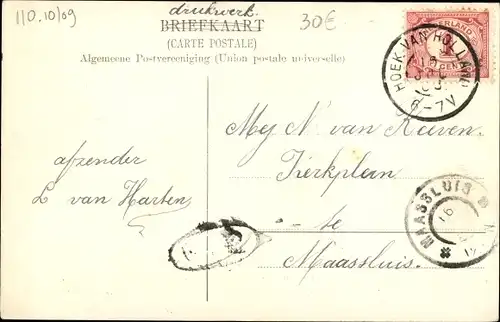 110.10/09
drukwerk
30€
BRIEFKAART
(CARTE POSTALE)
Algemeene Postvereeniging (Union postale universelle)
NEDERLAND
1 CENT
HOEK VAN HOLLAND
6-7V
Mej N. van Reeven
Kerkplein
te
Maassluis.
afzender
L van Harten
MAASSLUIS
16